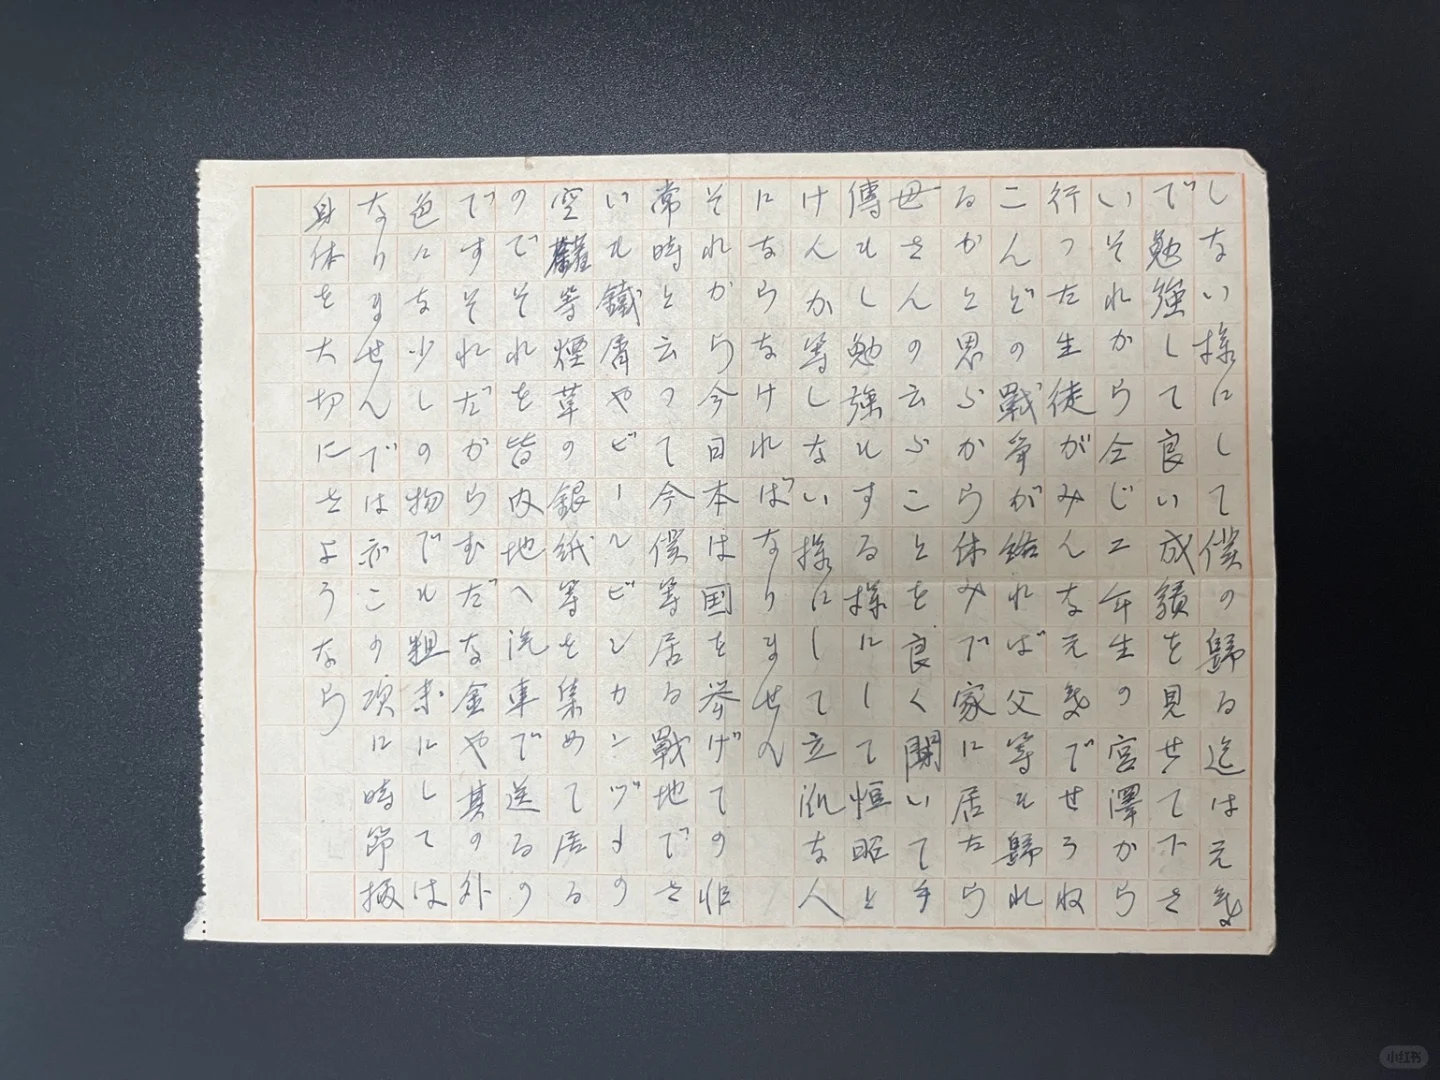 しない様にして僕の歸る迄は元気
で勉強して良い成績を見せて下さ
いそれから仝じ二年生の宮澤から
行った生徒がみんな元気でせうね
こんどの戰争が始れば父等も歸れ
るかと思ふから休みで家に居たら
母さんの云ふことを良く聞いて手
傳もし勉強もする様にして恒昭と
けんか等しない様にして立派な人
にならなければなりません
それから今日本は国を挙げての非
常時と云って今僕等居る戰地でさ
いも鐵屑やビールビンカンヅメの
空罐等煙草の銀紙等を集めて居る
のでそれを皆内地へ汽車で送るの
ですそれだからむだな金や其の外
色にな少しの物でも粗末にしては
なりませんではこの項に時節抦
身体を大切にさようなら
小红书